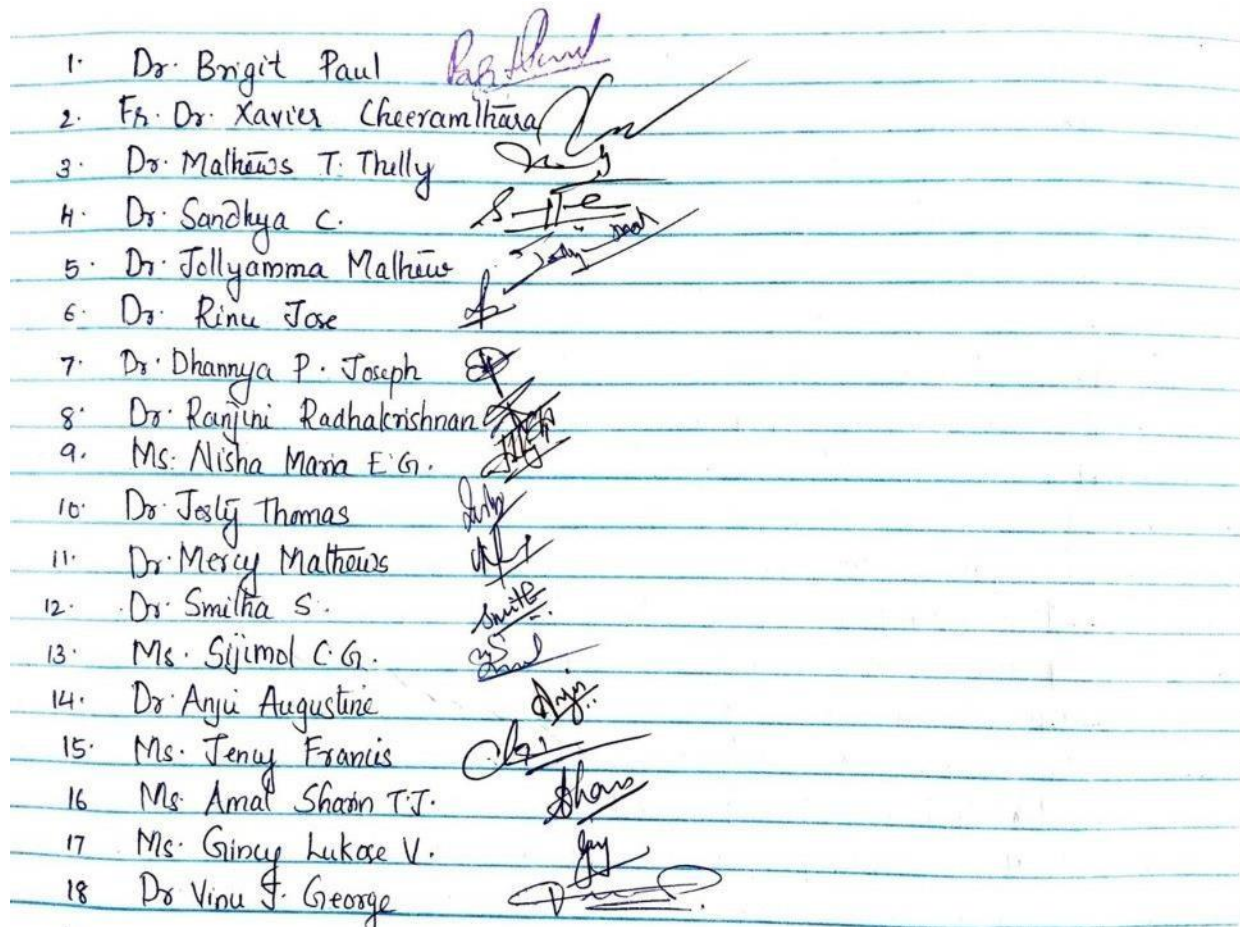 1. Dr. Brigit Paul
2. Fr. Dr. Xavier Cheeramthara
3. Dr. Mathews T. Thelly
4. Dr. Sandhya C.
5. Dr. Jollyamma Mathew
6. Dr. Rinu Jose
7. Dr. Dhannya P. Joseph
8. Dr. Ranjini Radhakrishnan
9. Ms. Nisha Maria E.G.
10. Dr. Jesly Thomas
11. Dr. Mercy Mathews
12. Dr. Smitha S. Smitha
13. Ms. Sijimol C.G.
14. Dr. Anju Augustine Anju
15. Ms. Jency Francis
16 Ms. Amal Sharin T.J.
17 Ms. Gincy Lukose V.
18 Dr Vinu J. George